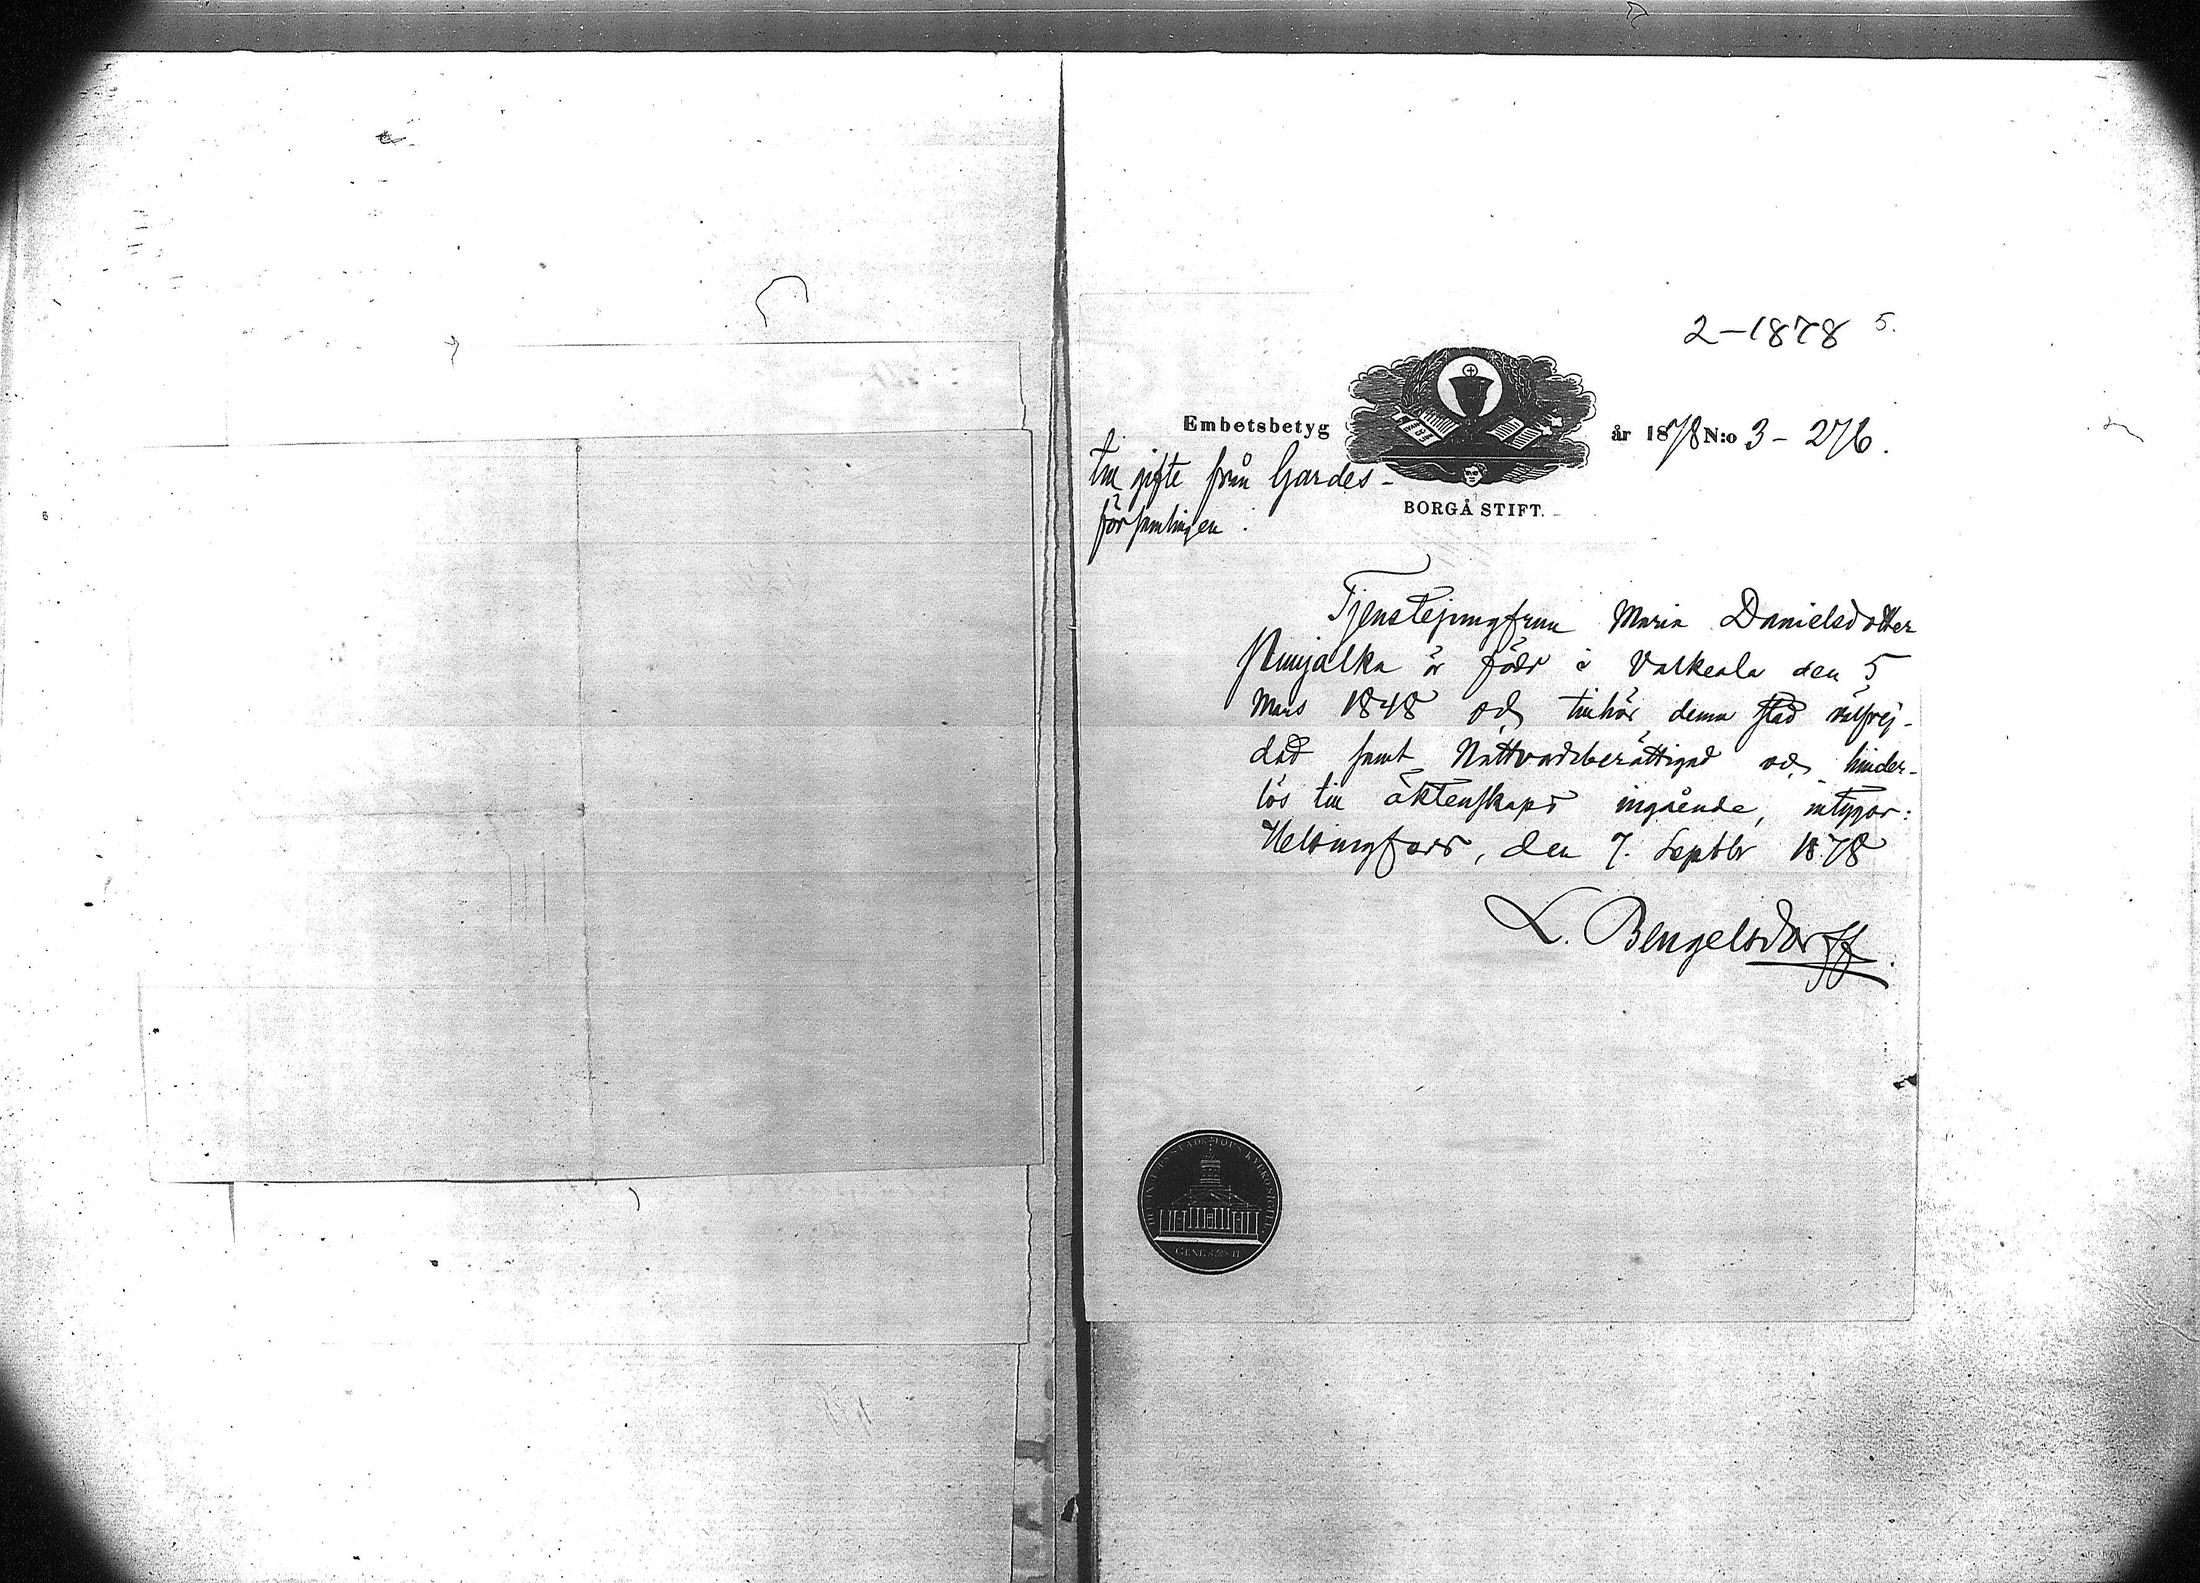 2–1878 5.
Embetsbetyg år 1878 N:o 3 – 276.
till gifte från Gardes-
församlingen.
BORGÅ STIFT.
Tjenstejungfrun Maria Danielsdotter
är född i Valkeala den 5
Mars 1848 och tillhör denna stad välfrej-
dad samt Nattvardsberättigad och hinder-
lös till äktenskaps ingående, intygar:
Helsingfors, den 7. Septbr 1878
L. Bengelsdorff.